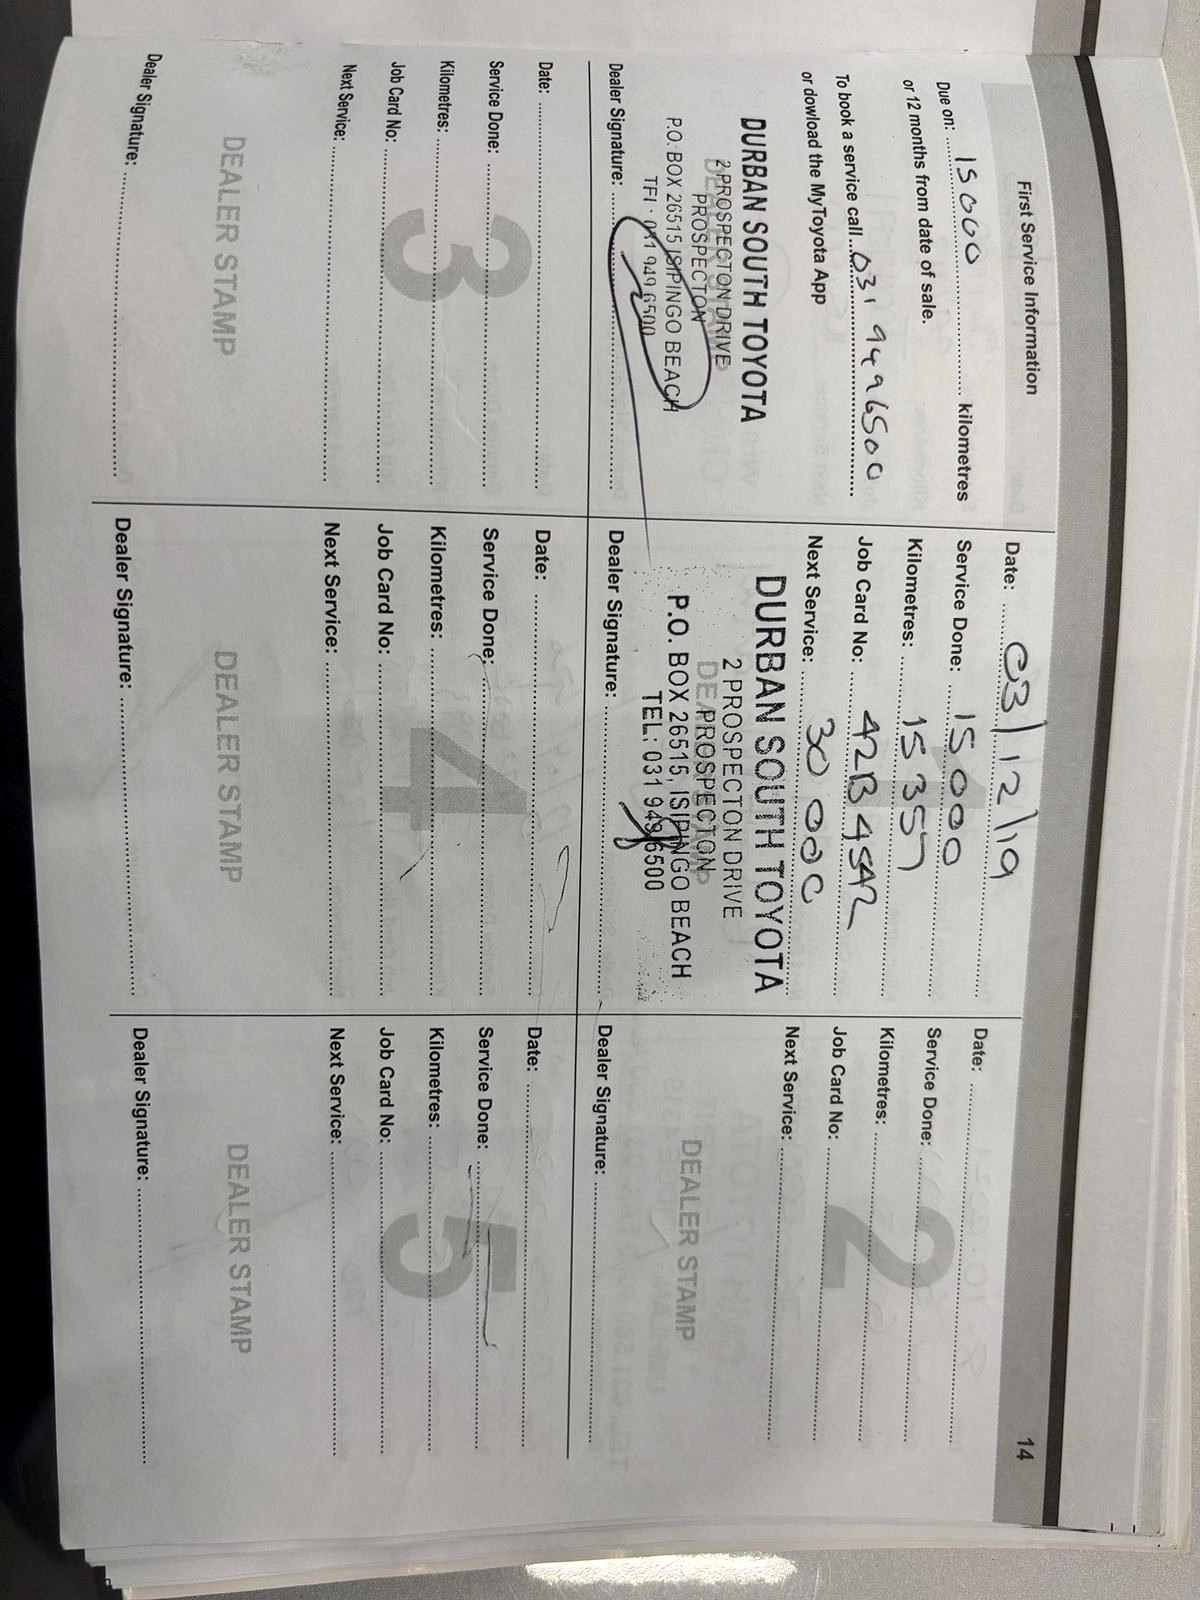 First Service Information
14
Due on: 15 000 kilometres
or 12 months from date of sale.
To book a service call 031 9496500
or dowload the MyToyota App
DEALER STAMP
DURBAN SOUTH TOYOTA
2 PROSPECTON DRIVE
PROSPECTON
P.O. BOX 26515 ISIPINGO BEACH
TEL: 031 949 6500
Dealer Signature:
1
Date: 03/12/19
Service Done: 15 000
Kilometres: 15 357
Job Card No: 42B4542
Next Service: 30 000
DEALER STAMP
DURBAN SOUTH TOYOTA
2 PROSPECTON DRIVE
PROSPECTON
P.O. BOX 26515, ISIPINGO BEACH
TEL: 031 949 6500
Dealer Signature:
2
Date:
Service Done:
Kilometres:
Job Card No:
Next Service:
DEALER STAMP
Dealer Signature:
3
Date:
Service Done:
Kilometres:
Job Card No:
Next Service:
DEALER STAMP
Dealer Signature:
4
Date:
Service Done:
Kilometres:
Job Card No:
Next Service:
DEALER STAMP
Dealer Signature:
5
Date:
Service Done:
Kilometres:
Job Card No:
Next Service:
DEALER STAMP
Dealer Signature: